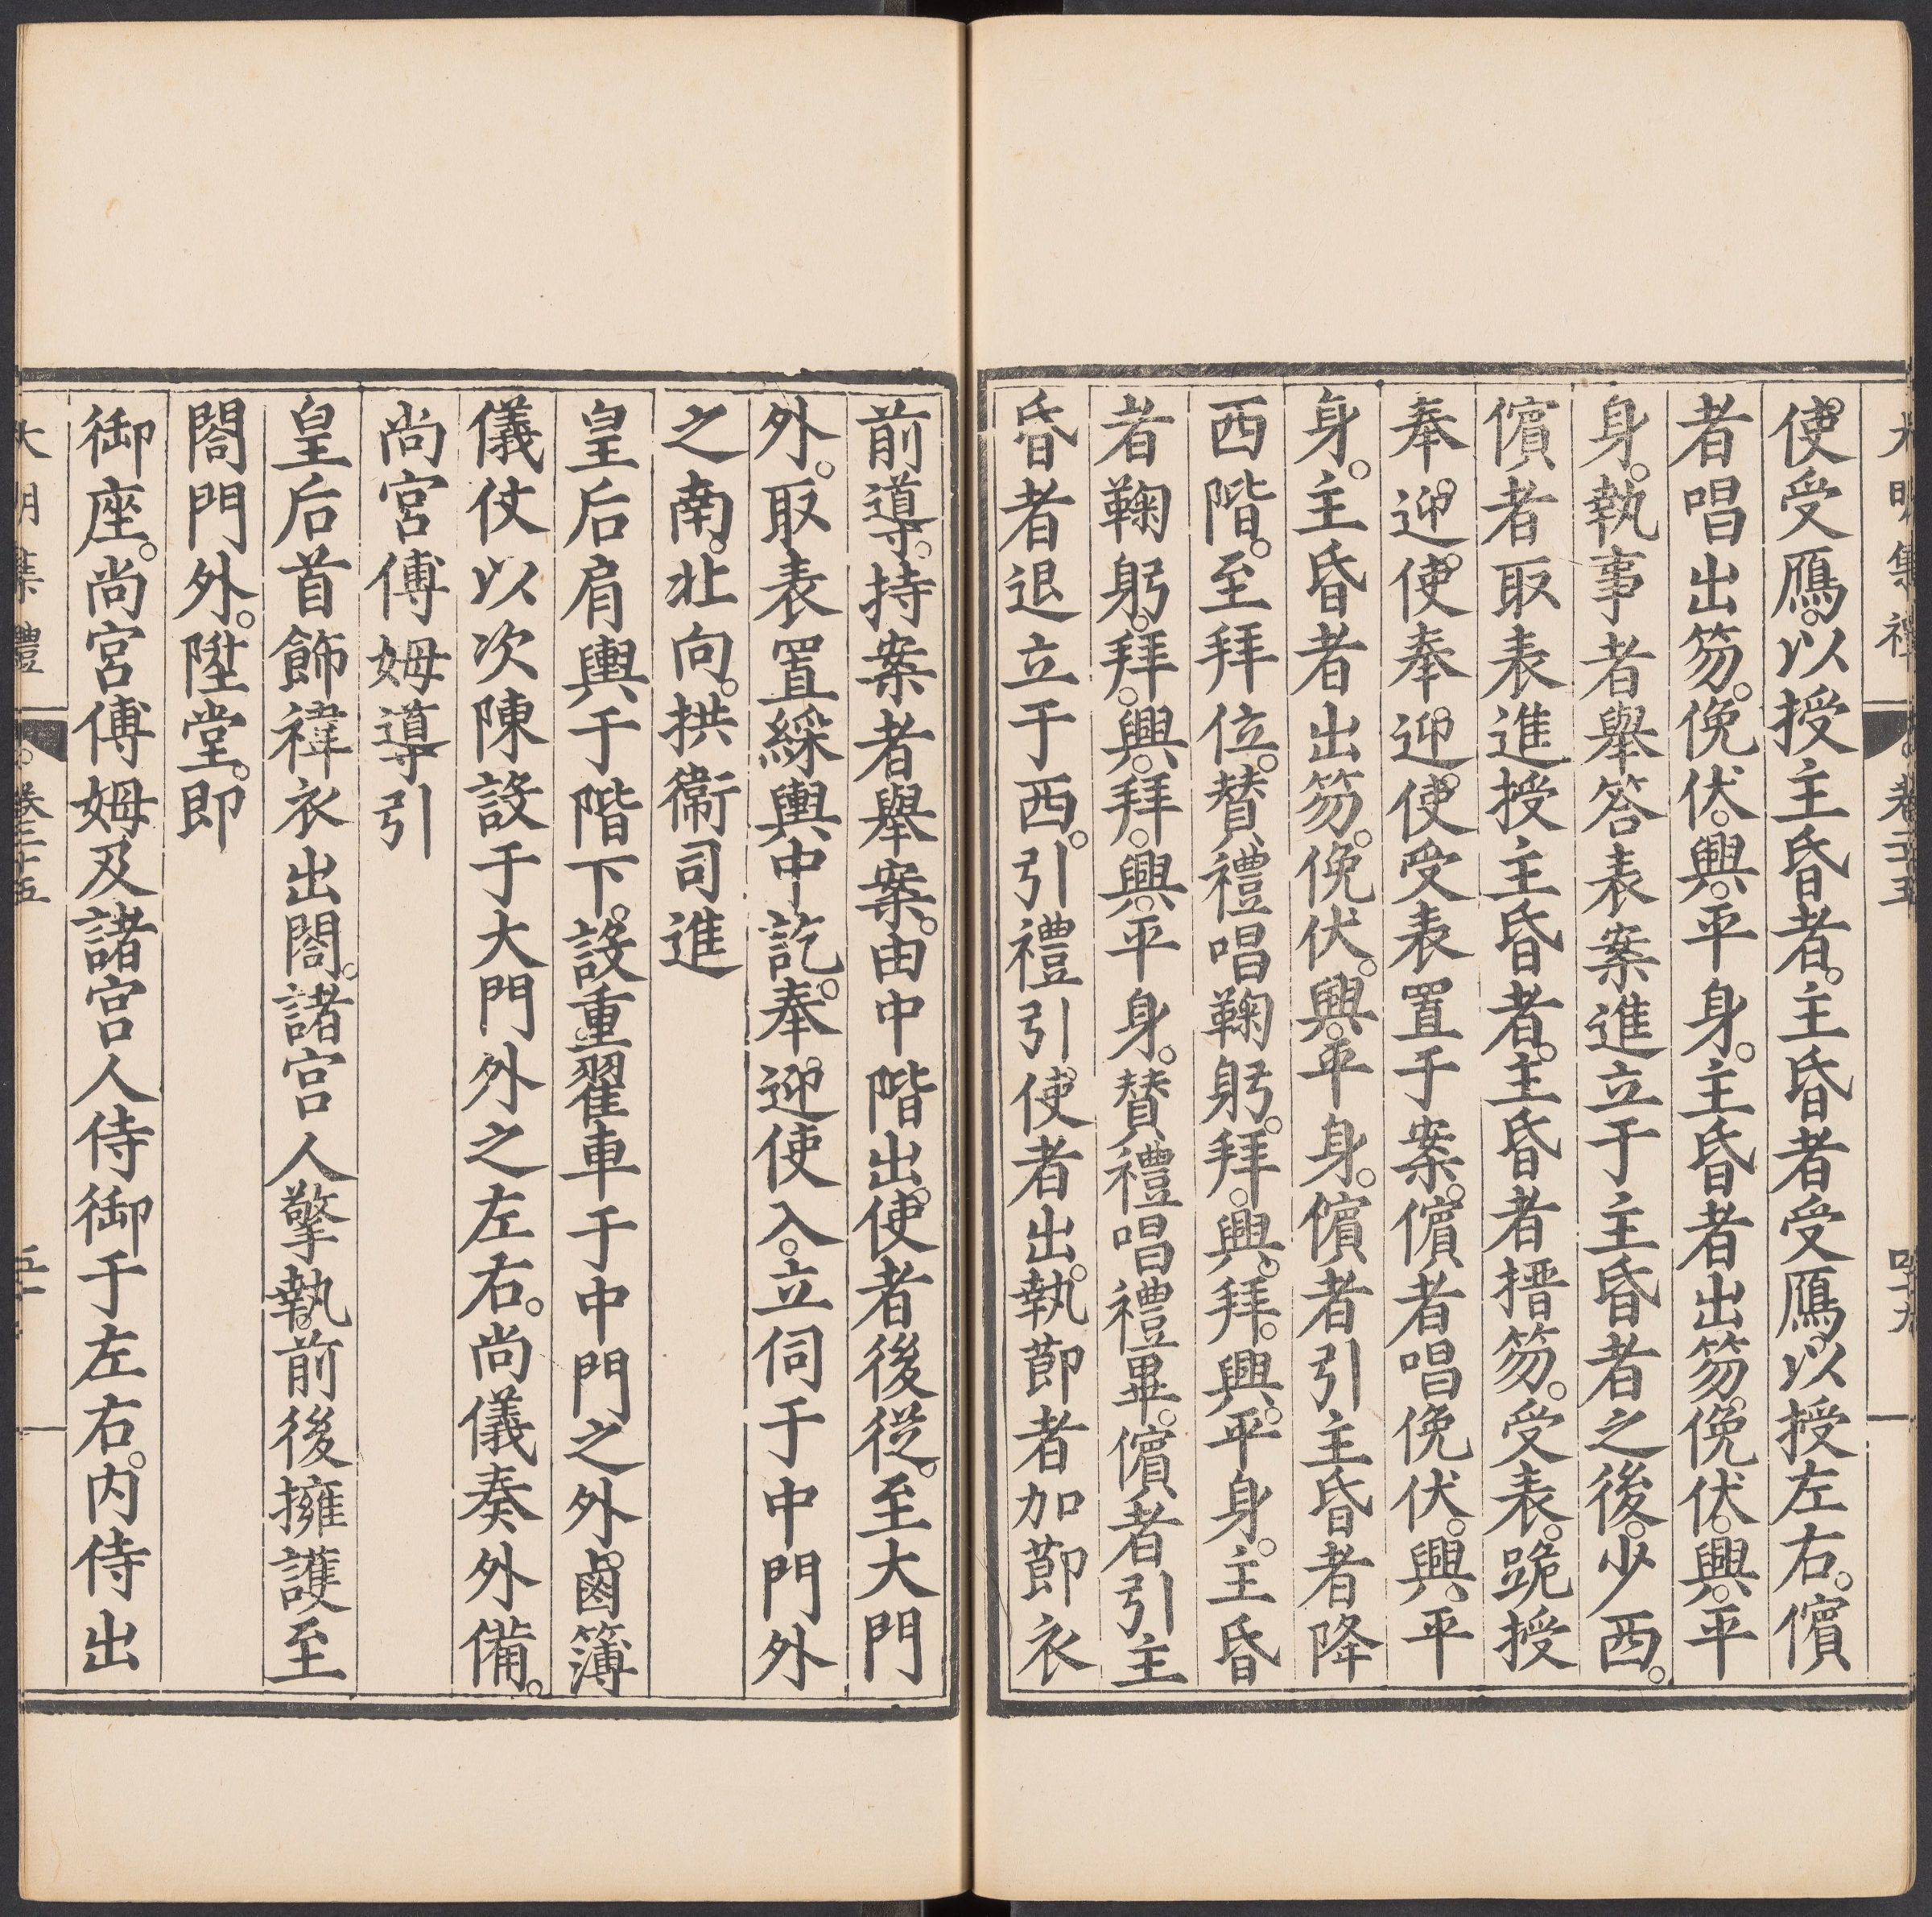 大明集禮 卷二十五 四十九
使受鴈。以授主昏者。主昏者受鴈以授左右。儐
者唱出笏。俛伏。興。平身。主昏者出笏。俛伏。興。平
身。執事者舉答表案進立于主昏者之後。少西。
儐者取表進授主昏者。主昏者搢笏。受表。跪授
奉。迎。使。奉迎。使受表置于案。儐者唱俛伏。興。平
身。主昏者出笏。俛伏。興。平身。儐者引主昏者降
西階。至拜位。贊禮唱鞠躬。拜。興。拜。興。平身。主昏
者鞠躬。拜。興。拜。興。平身。贊禮唱禮畢。儐者引主
昏者退立于西。引禮引使者出。執節者加節衣
前導。持案者舉案。由中階出。使者後從。至大門
外。取表置綵輿中訖。奉迎使入。立伺于中門外
之南。北向。拱衛司進
皇后肩輿于階下。設重翟車于中門之外。鹵簿
儀仗以次陳設于大門外之左右。尚儀奏外備。
尚宮傅姆導引
皇后首飾褘衣出閤。諸宮人擎執。前後擁護至
閤門外。陞堂。即
御座。尚宮傅姆及諸宮人侍御于左右。內侍出
大明集禮 卷二十五